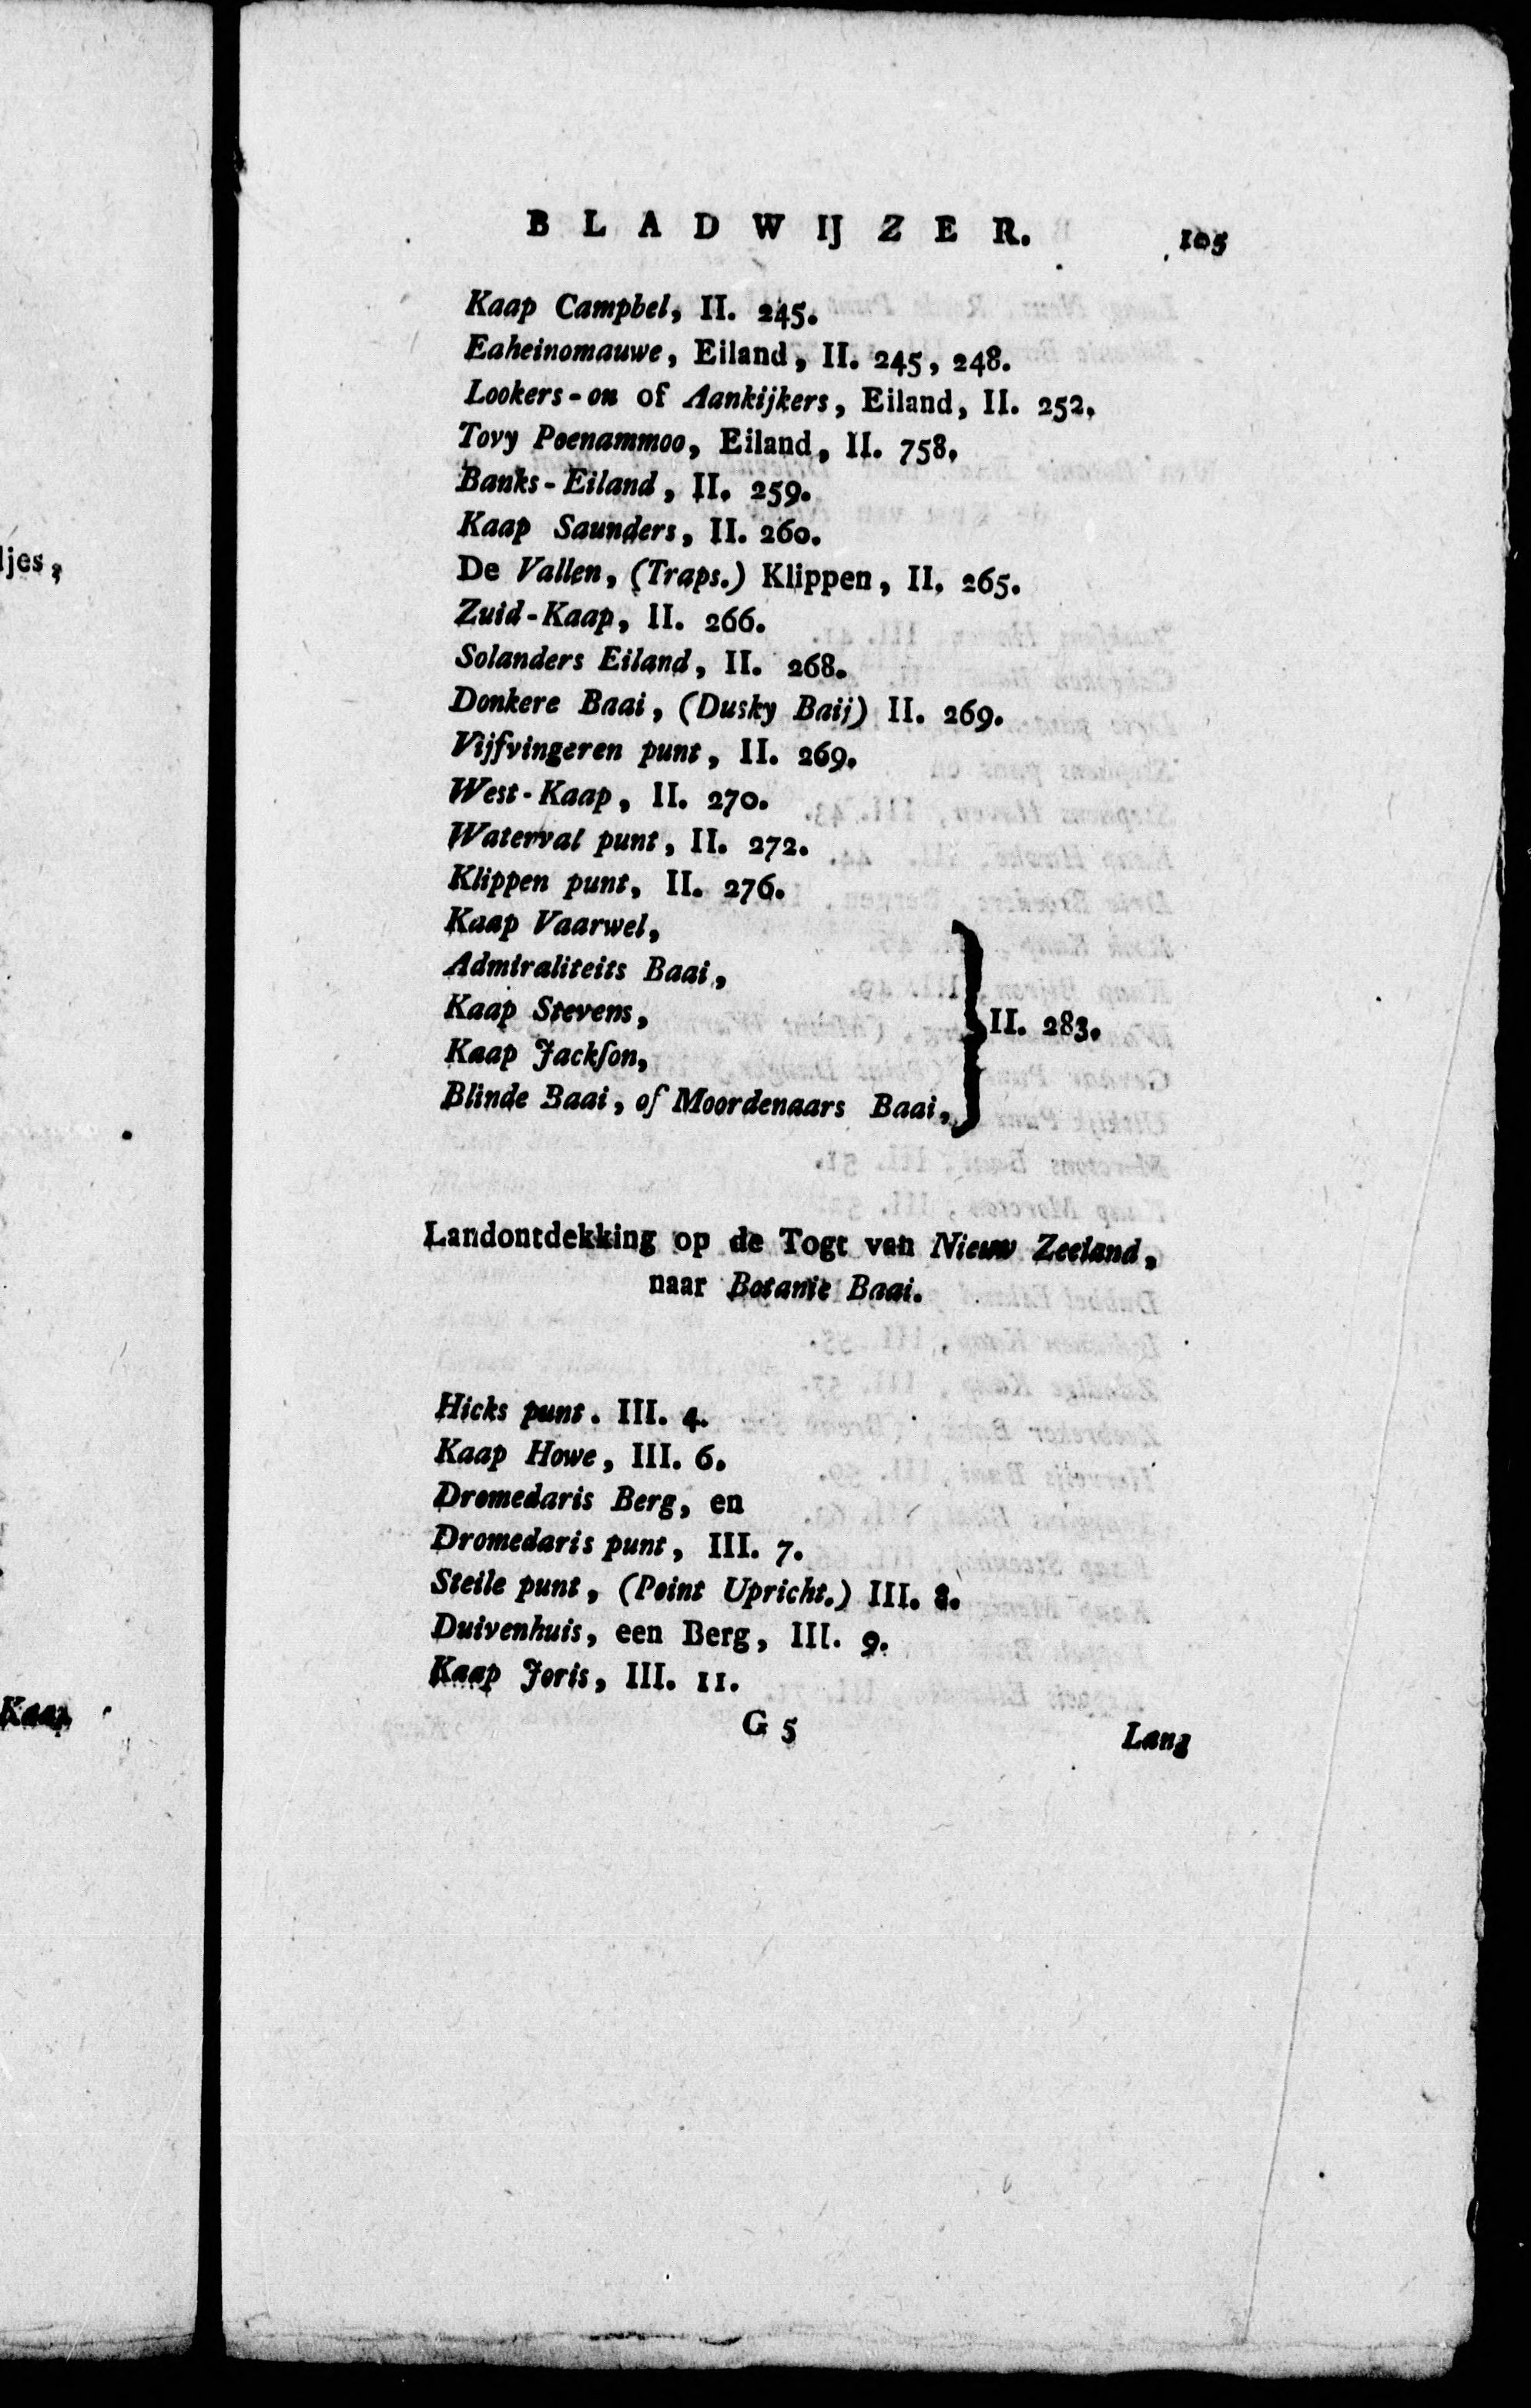 BLADWIJZER. 105
Kaap Campbel, II. 245.
Eaheinomauwe, Eiland, II. 245, 248.
Lookers-on of Aankijkers, Eiland, II. 252.
Tovy Poenammoo, Eiland, II. 758.
Banks-Eiland, II. 259.
Kaap Saunders, II. 260.
De Vallen, (Traps.) Klippen, II. 265.
Zuid-Kaap, II. 266.
Solanders Eiland, II. 268.
Donkere Baai, (Dusky Baij) II. 269.
Vijfvingeren punt, II. 269.
West-Kaap, II. 270.
Waterval punt, II. 272.
Klippen punt, II. 276.
Kaap Vaarwel,
Admiraliteits Baai,
Kaap Stevens,
II. 283.
Kaap Jackſon,
Blinde Baai, of Moordenaars Baai,
Landontdekking op de Togt van Nieuw Zeeland,
naar Botanie Baai.
Hicks punt. III. 4.
Kaap Howe, III. 6.
Dromedaris Berg, en
Dromedaris punt, III. 7.
Steile punt, (Point Upricht.) III. 8.
Duivenhuis, een Berg, III. 9.
Kaap Joris, III. 11.
G 5
Lang
ljes,
Kaap